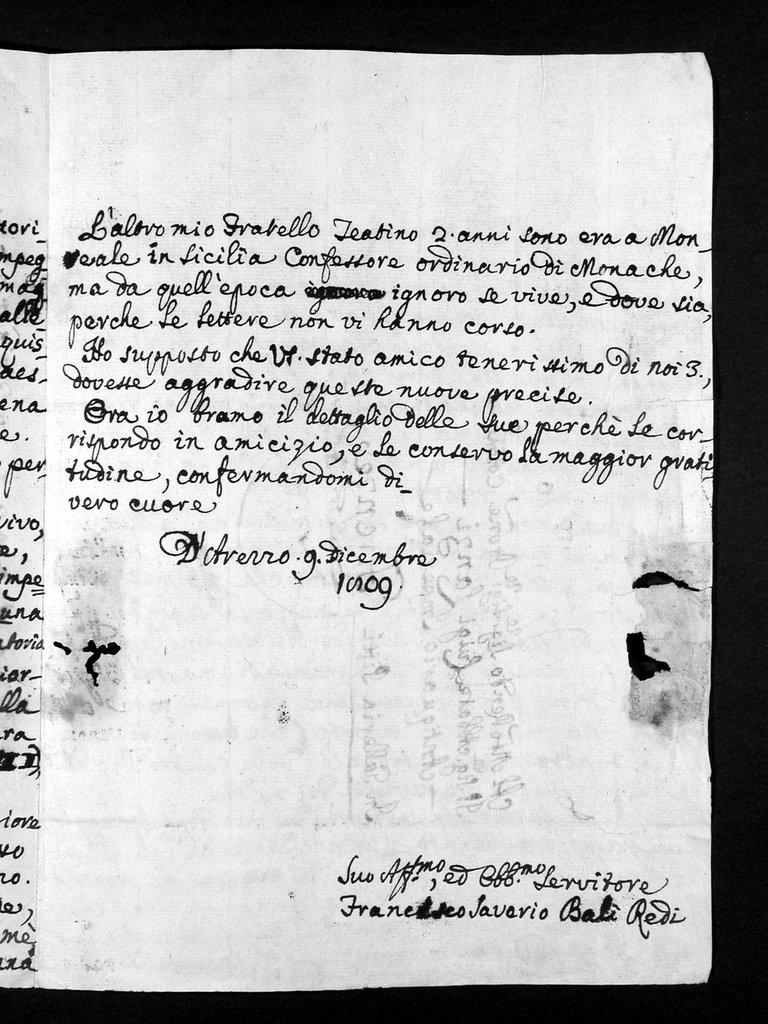 tori-
mpeg
mag
alle
quis
aes-
ena
e.
per
vivo,
e,
impe=
una
atoria
iar-
lla
ra
III,
iore
no.
e,
mè
ana
L'altro mio Fratello Teatino 2. anni sono era a Mon
reale in Sicilia Confessore ordinario di Monache,
ma da quell'epoca ignoro se vive, e dove sia,
perche le lettere non vi hanno corso.
Ho supposto che VS. stato amico tenerissimo di noi 3.,
dovesse aggradire queste nuove precise.
Ora io bramo il dettaglio delle sue perchè le cor-
rispondo in amicizio, e le conservo la maggior grati
tudine, confermandomi di
vero cuore
D'Arezzo. 9. Dicembre
1809.
Suo Aff.mo, ed Obb.mo Servitore
Francesco Saverio Balì Redi